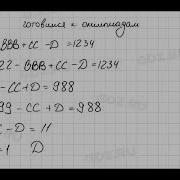 готовимся к олимпиадам
BBB + CC - D = 1234
22 - BBB + CC - D = 1234
CC + D = 988
99 - CC + D = 988
C - D = 11
= 1 D